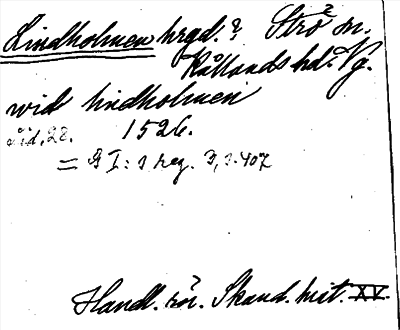 Lindholmen hrgd.? Strö sn.
Kållands hd. Vg.
wid lindholmen
sid. 28. 1526.
= G I:s reg. 3, s. 407
Handl. rör. Skand. hist. XV.